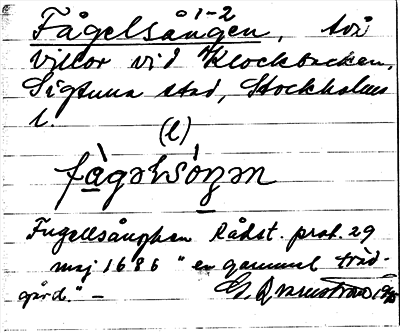 Fågelsången 1-2, två
villor vid Klockbacken,
Sigtuna stad, Stockholms
l.
(l)
fà̱gəlsóŋən
Fugellsånghen Rådst. prot. 29
maj 1686 "en gammal träd-
gård." –